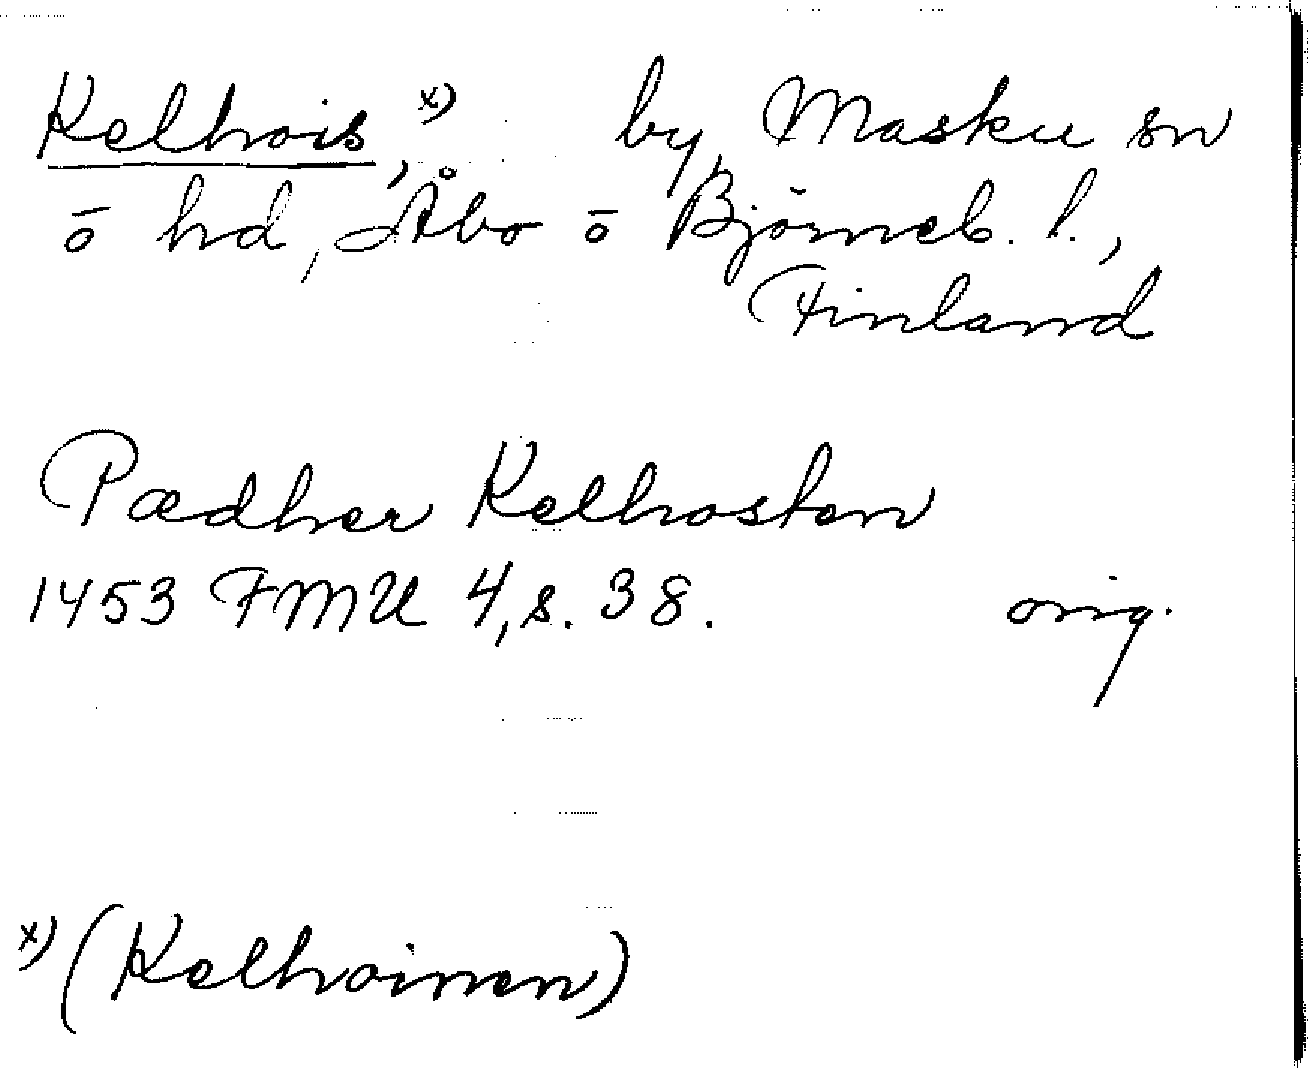 Kelhois,x) by, Masku sn
ō hd, Åbo ō Björneb. l.,
Finland
Pædher Kelhosten
1453 FMU 4, s. 38. orig.
x) (Kelhoinen)